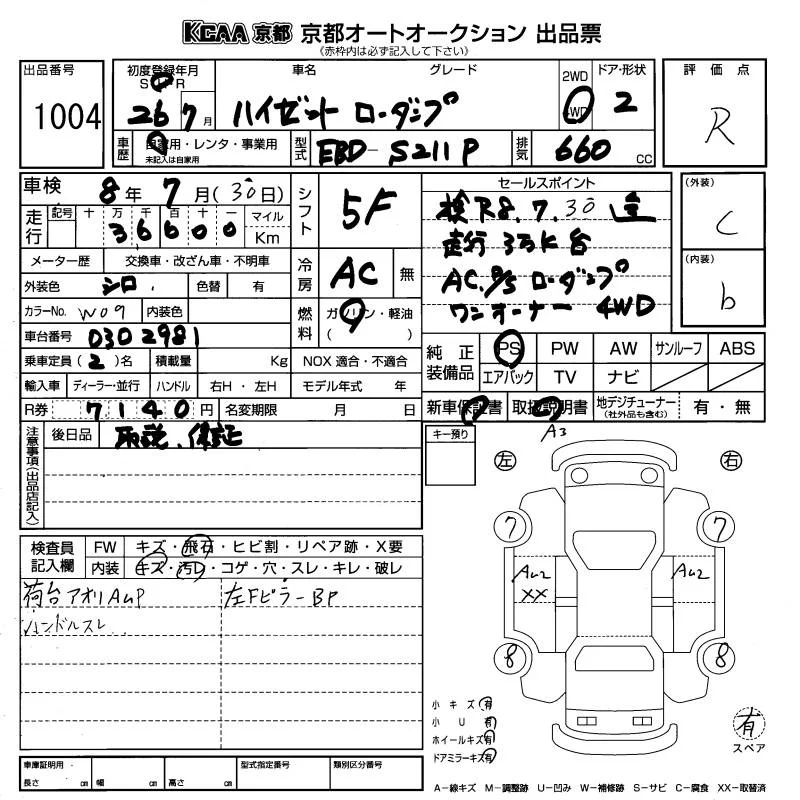 KCAA 京都 京都オートオークション 出品票
《赤枠内は必ず記入して下さい》
出品番号 1004
初度登録年月 S・H・R 26年 7月
車名 グレード ハイゼット ローダンプ
2WD 4WD
ドア・形状 2
評価点 R
車歴 自家用・レンタ・事業用 未記入は自家用
型式 EBD-S211P
排気 660 CC
車検 8年 7月(30日)
シフト 5F
セールスポイント
検R8.7.30迄
走行3万K台
AC.P/S ローダンプ
ワンオーナー 4WD
(外装) C
(内装) b
走行 記号 十 万 千 百 十 一 マイル Km
36600
メーター歴 交換車・改ざん車・不明車
外装色 シロ 色替 有
冷房 AC 無
カラーNo. W09 内装色
燃料 ガソリン・軽油 ( )
車台番号 0302981
乗車定員(2)名 積載量 Kg NOX適合・不適合
輸入車 ディーラー・並行 ハンドル 右H・左H モデル年式 年
R券 7140円 名変期限 月 日
純正装備品 PS PW AW サンルーフ ABS
エアバック TV ナビ
新車保証書 取扱説明書 地デジチューナー(社外品も含む) 有・無
注意事項(出品店記入)
後日品 取説、保証
キー預り
A3
左 右
7 7
AU2 XX AU2
8 8
検査員記入欄 FW キズ・飛石・ヒビ割・リペア跡・X要
内装 キズ・汚レ・コゲ・穴・スレ・キレ・破レ
荷台アオリAUP 左FピラーBP
ハンドルスレ
小キズ有
小U有
ホイールキズ有
ドアミラーキズ有
有 スペア
車庫証明用 長さ cm 幅 cm 高さ cm 型式指定番号 類別区分番号
A−線キズ M−調整跡 U−凹み W−補修跡 S−サビ C−腐食 XX−取替済